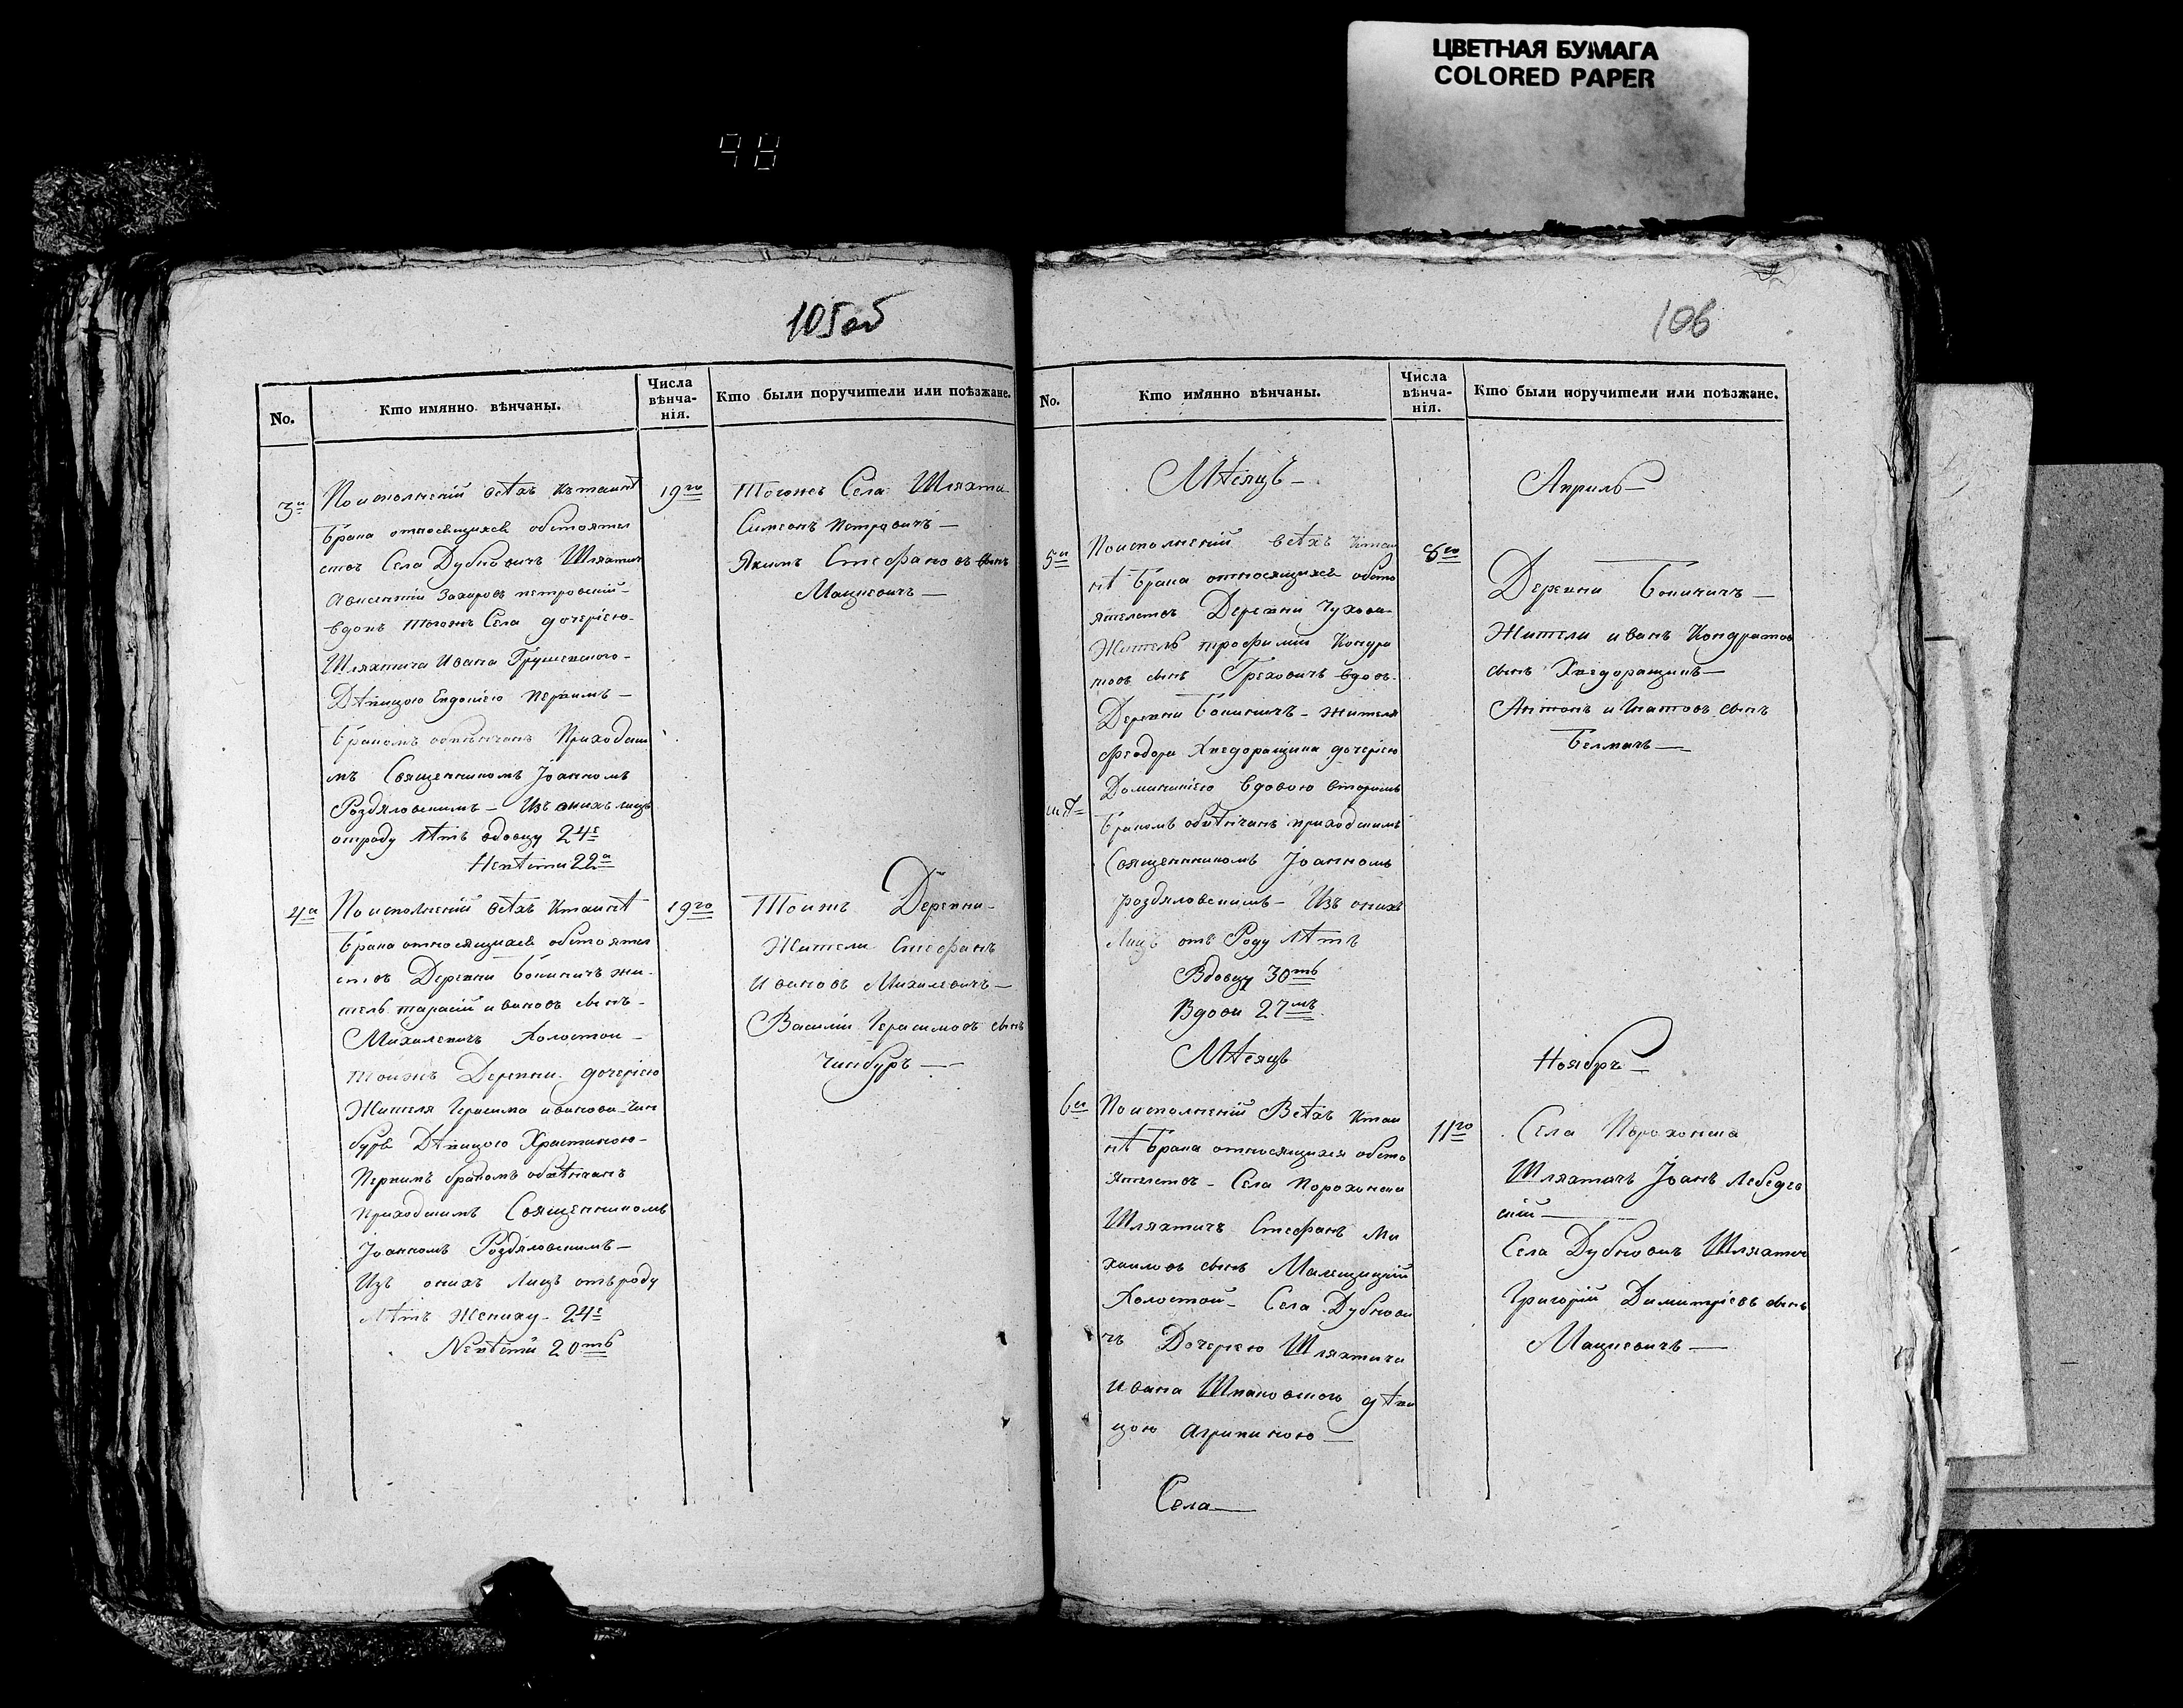 ЦВЕТНАЯ БУМАГА
COLORED PAPER
98
105об
No.
Кто имянно вѣнчаны.
Числа
вѣнча-
нія.
Кто были поручители или поѣзжане.
3й
По исполненій всѣхъ къ таинѣ
брака относящихся обстоятел
ствъ Села Дубновичъ Шляхтич
Авксентій Захаровъ петровскій
вдовъ тогожъ Села дочерїею
Шляхтича Ивана Грушевского
Дѣвицою Евдокїею первимъ
бракомъ обвѣнчанъ Приходски
мъ Священникомъ Іоанномъ
Роздяловскимъ Изъ онихъ лицъ
отроду лѣтъ вдовцу 24е
Невѣсти 22а
19го
Тогожъ Села Шляхти
Симеонъ Петровичъ
Якимъ Стефановъ сынъ
Мацкевичъ
4й
По исполненій всѣхъ к таинѣ
брака относящихся обстоятел
ствъ Деревни Бокиничъ жи
тель тарасій ивановъ сынъ
Михалевичъ Холостой
тоижъ Деревни дочерїею
Жителя Герасима иванова Чин
бура Дѣвицою Христиною
Первимъ бракомъ обвѣнчанъ
Приходскимъ Священникомъ
Іоанномъ Роздяловскимъ
Изъ онихъ Лицъ отъ роду
Лѣтъ Жениху 24е
Невѣстй 20ть
19го
Тоижъ Деревни
Жители Стефанъ
Ивановъ Михалевичъ
Василій Герасимовъ сынъ
Чинбуръ
106
No.
Кто имянно вѣнчаны.
Числа
вѣнча-
нія.
Кто были поручители или поѣзжане.
Мѣсяцъ
Апрѝль
5й
По исполненій всѣхъ к таи
нѣ брака относящихся обсто
ятелствъ Деревнй Чухова
Житель трофимій Кондра
товъ сынъ Греховичъ вдовъ
Деревни Бокиничъ жителя
Феодора Хведоращика дочерїею
Доминикїею вдовою вторимъ
бракомъ обвѣнчанъ приходскимъ
Священникомъ Іоанномъ
роздяловскимъ Изъ онихъ
Лицъ отъ Роду лѣтъ
Вдовцу 30ть
Вдови 27мъ
8го
Деревни Бокиничъ
Жители иванъ Кондратов
сынъ Хведоращикъ
Антонъ Игнатовъ сынъ
Мѣсяцъ
Ноябрь
6й
По исполненій Всѣхъ к таи
нѣ брака относящихся обсто
ятелствъ Села Порохонска
Шляхтичъ Стефанъ Ми
хаиловъ сынъ Малещицкій
Холостой Села Дубнови
чъ Дочерїею Шляхтича
Ивана Шпаковского дѣви
цою Агрипиною
11го
Села Порохонска
Шляхтичъ Іоанъ Лебедев
скій
Села Дубновичъ Шляхтич
Григорій Димитріевъ сынъ
Мацкевичъ
Села